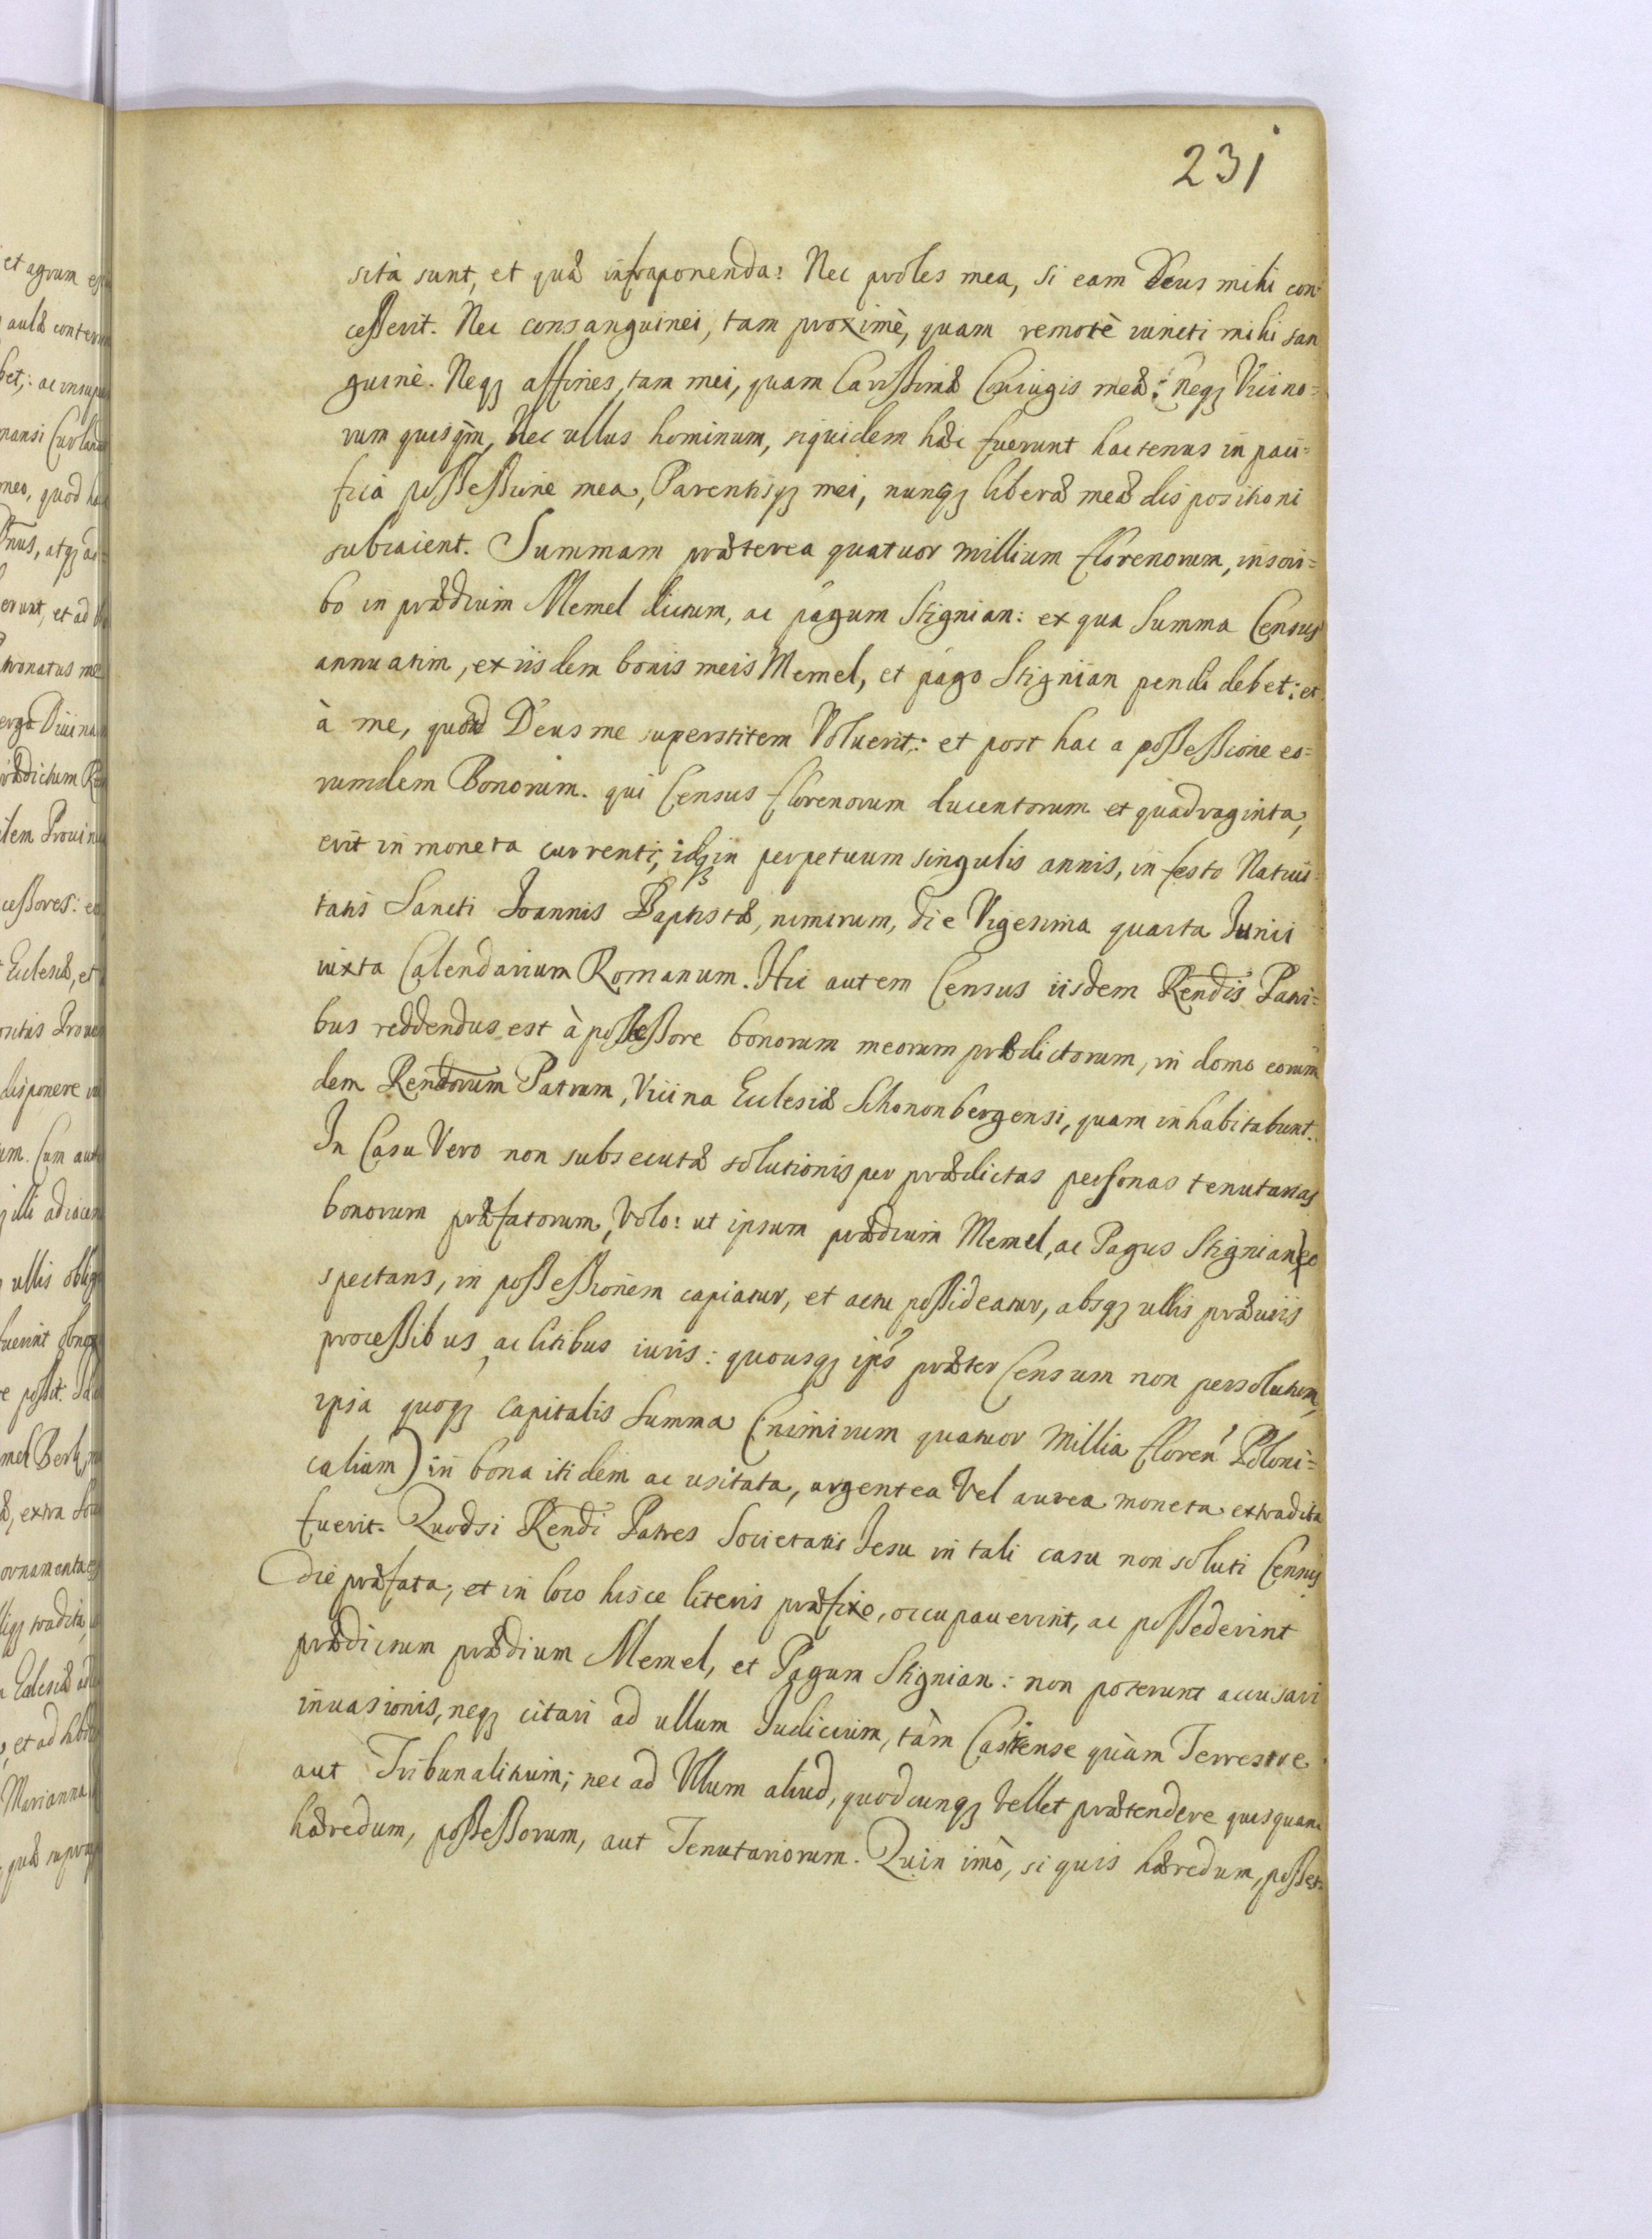 231
sita sunt, et quæ infraponenda: Nec proles mea, si eam Deus mihi con-
cesserit. Nec consanguinei, tam proximè, quam remotè iuncti mihi san
guine. Neqꝫ affines, tam mei, quam Carissimæ Coniugis meæ: Neqꝫ Vicino=
rum quisqm̃, Nec ullus hominum, siquidem hæc fuerunt hactenus in paci=
fica possessione mea, Parentisqꝫ mei, nunqꝫ liberæ meæ dispositioni
subiacent. Summam præterea quatuor millium florenorum, inscri=
bo in prædium Memel dictum, ac pagum Stignian: ex qua Summa Census
annuatim, ex iisdem bonis meis Memel, et pago Stignian pendi debet: et
à me, quoad Deus me superstitem Voluerit: et post hac a possessione eo=
rumdem Bonorum. qui Census florenorum ducentorum et quadraginta,
erit in moneta currenti, idqꝫ in perpetuum singulis annis, in festo Natiui=
tatis Sancti Ioannis Baptistæ, nimirum, die Vigesima quarta Iunii
iuxta Calendarium Romanum. Hic autem Census iisdem Rendis Patri=
bus reddendus est à possessore bonorum meorum prædictorum, in domo eorum
dem Rendorum Patrum, Vicina Ecclesiæ Schononbergensi, quam inhabitabunt.
In Casu Vero non subsecutæ solutionis per prædictas personas tenutarias
bonorum præfatorum, Volo: ut ipsum prædium Memel, ac Pagus Stignian eo
spectans, in possessionem capiatur, et actu possideatur, absqꝫ ullis præuiis
processibus, ac litibus iuris: quousqꝫ ip̃s præter Censum non persolutum,
ipsa quoqꝫ capitalis Summa (nimirum quatuor Millia floren' Poloni=
calium) in bona itidem ac usitata, argentea Vel aurea moneta extradita
fuerit. Quodsi Rendi Patres Societatis Iesu in tali casu non soluti Census
die præfata, et in loco hisce literis præfixo, occupauerint, ac possederint
prædictum prædium Memel, et Pagum Stignian: non poterunt accusari
inuasionis, neqꝫ citari ad ullum Iudicium, tàm Castrense quàm Terrestre
aut Tribunalitium; nec ad Vllum aliud, quodcunqꝫ Vellet prætendere quisquam
hæredum, possessorum, aut Tenutariorum. Quin imò, si quis hæredum, posses=